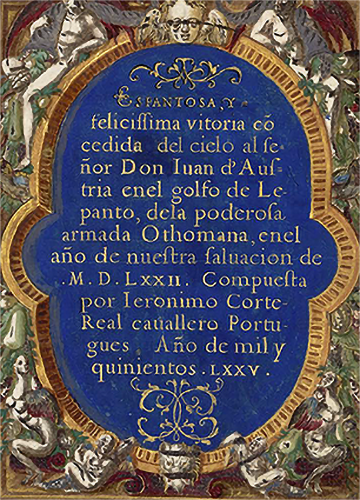 Espantosa, y
felicissima vitoria cõ
cedida del cielo al se
ñor Don Iuan d'Aus
tria enel golfo de Le
panto, dela poderosa
armada Othomana, enel
año de nuestra saluacion de
.M.D.LXXII. Compuesta
por Ieronimo Corte
Real cauallero Portu
gues Año de mil y
quinientos .LXXV.